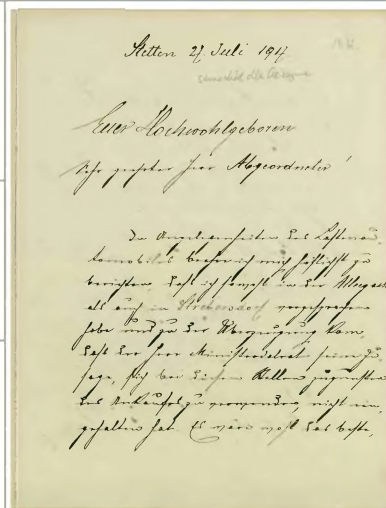 Stetten 27. Juli 1917
Euer Hochwohlgeboren
Sehr geehrter Herr Abgeordneter!
In Angelegenheiten des Lastenau-
tomobiles beehre ich mich höflichst zu
berichten, daß ich sowohl in der
als auch in Strebersdorf vorgesprochen
habe und zu der Überzeugung kam,
daß der Herr Ministerialrat seine Zu-
sage, sich bei diesen Stellen zugunsten
des Ankaufs zu verwenden, nicht ein-
gehalten hat. Es wäre wohl das beste,